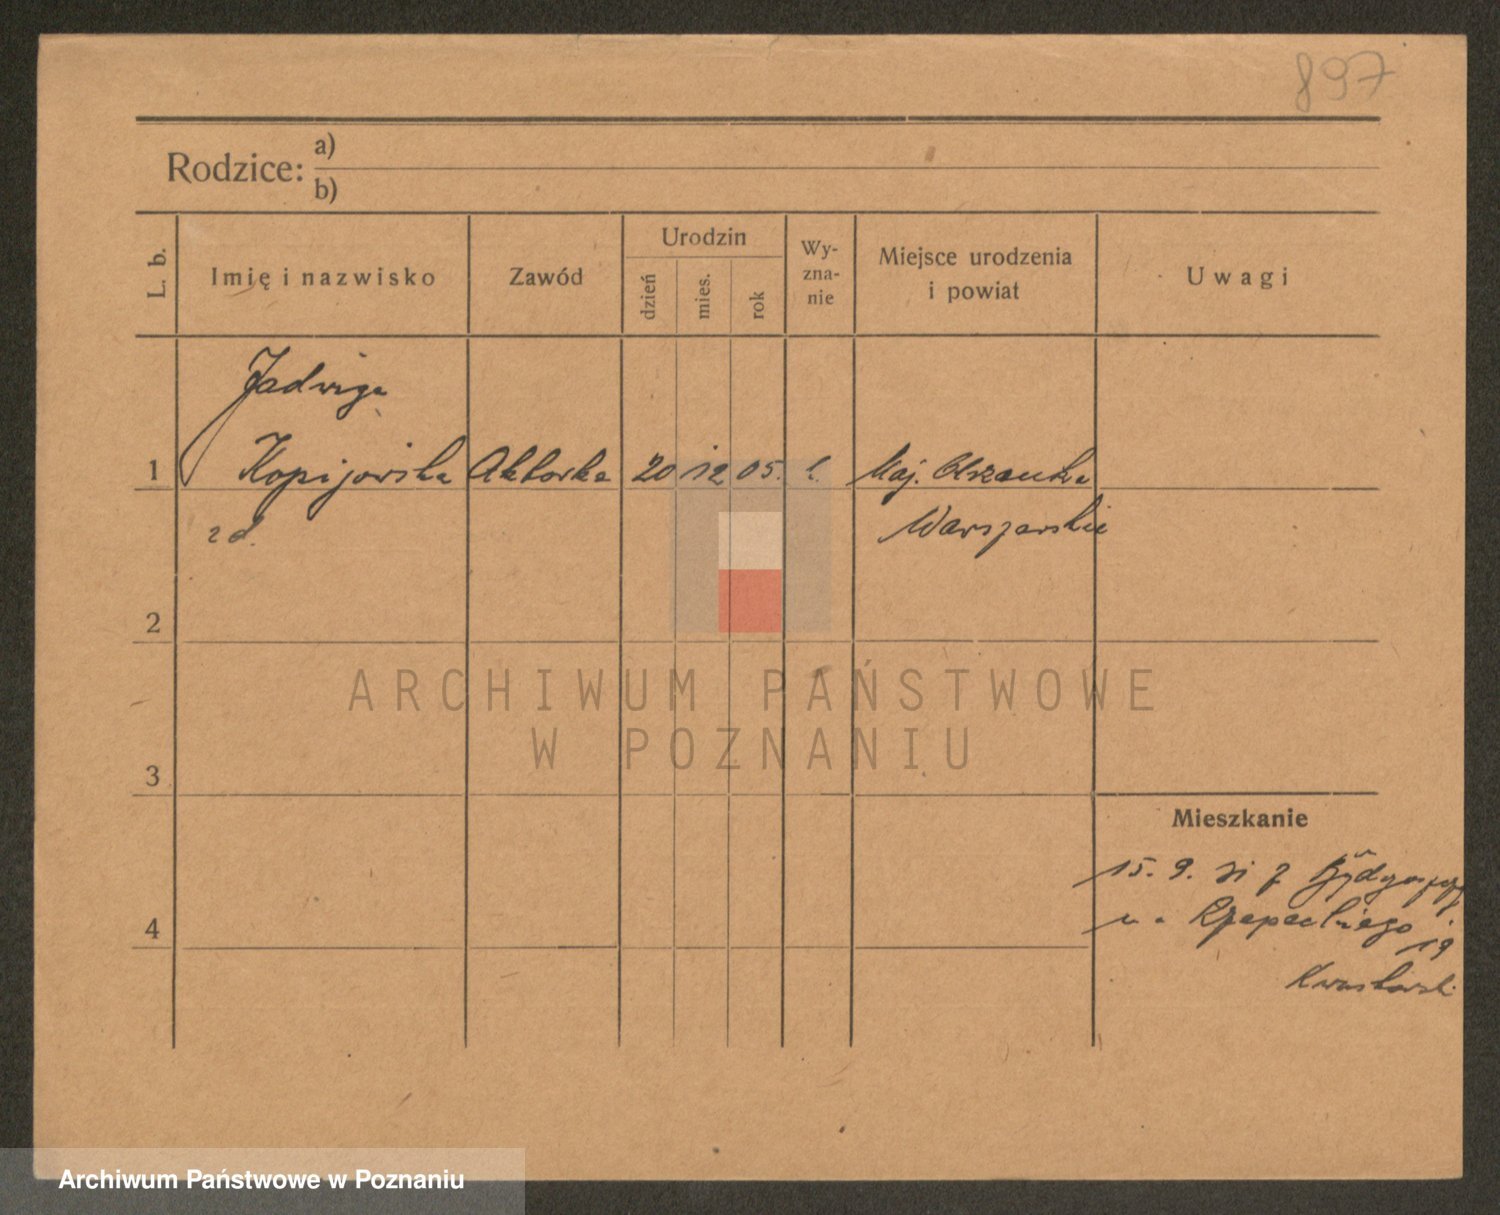 897
Rodzice: a)
b)
L. b.
Imię i nazwisko
Zawód
Urodzin
dzień
mies.
rok
Wy-
zna-
nie
Miejsce urodzenia
i powiat
Uwagi
Jadwiga
1 Kopijowska Aktorka 20 12 05. Maj. Olszanka
zd. Warszawskie
2
ARCHIWUM PAŃSTWOWE
W POZNANIU
3
Mieszkanie
15. 9. z
4 Rzepeckiego
19
Archiwum Państwowe w Poznaniu